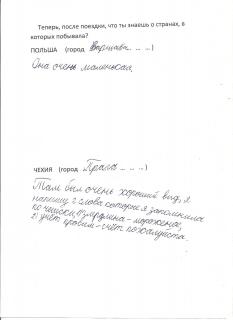 Теперь, после поездки, что ты знаешь о странах, в
которых побывала?
ПОЛЬША (город Варшава... ... ...)
Она очень маленькая.
ЧЕХИЯ (город Прага... ... ...)
Там был очень хороший вид, я
напишу 2 слова которые я запомнила
по чешски, 1) змрзлина - мороженое,
2) учет провим - счёт пожалуйста.